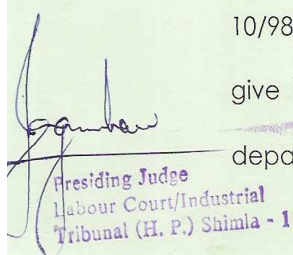 10/98
give
depa
Presiding Judge
Labour Court/Industrial
Tribunal (H. P.) Shimla - 1